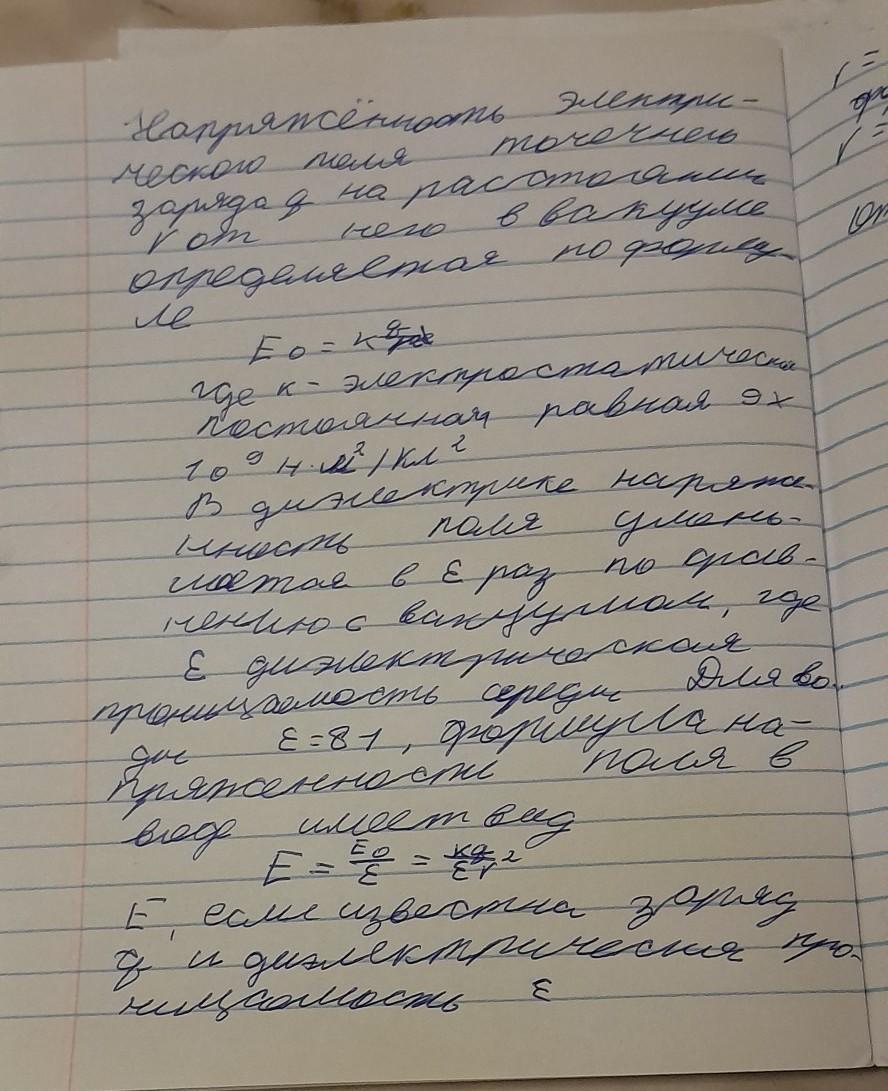 Напряжённость электри-
ческого поля точечного
заряда q на расстоянии
r от него в вакууме
определяется по форму-
ле
E0 = k q/r²
где к - электростатическая
постоянная равная 9×
10⁹ Н·м²/Кл²
В диэлектрике напряже-
нность поля умень-
шается в ε раз по срав-
нению с вакуумом, где
ε диэлектрическая
проницаемость среды Для во-
ды ε=81, формула на-
пряженности поля в
воде имеет вид
E = E0/ε = kq/εr²
E, если известна заряд
q и диэлектрическая про-
ницаемость ε
r =
r =